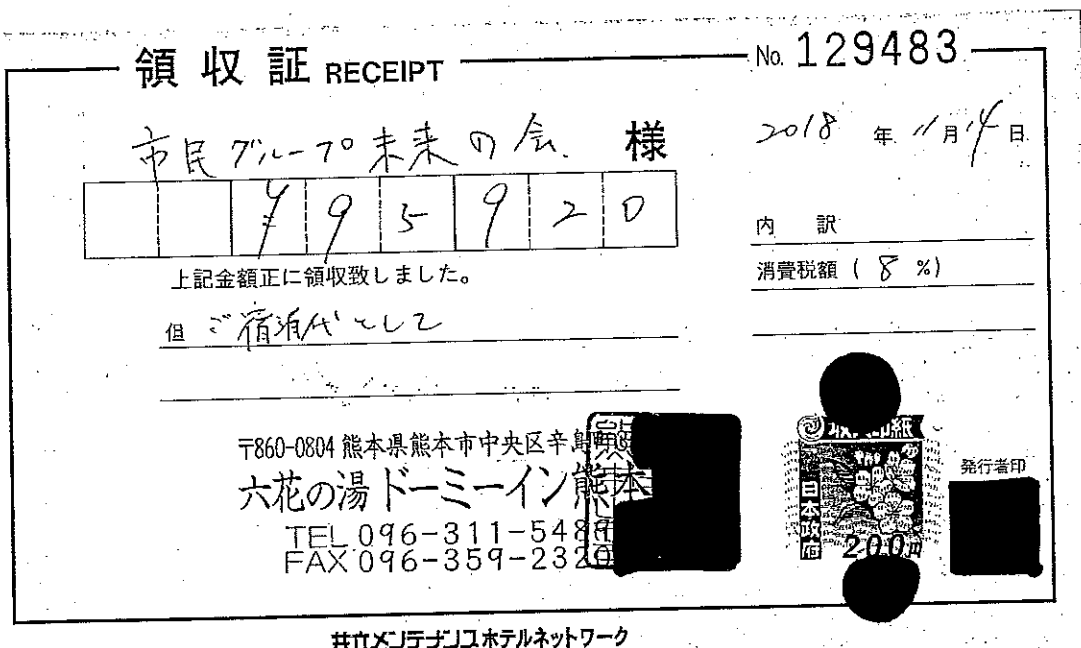 領収証 RECEIPT
No. 129483
市民グループ未来の会 様
2018 年 11 月 14 日
¥95920
上記金額正に領収致しました。
内 訳
消費税額 ( 8 %)
但 ご宿泊代として
〒860-0804 熊本県熊本市中央区辛島町
六花の湯 ドーミーイン熊本
TEL 096-311-548
FAX 096-359-232
収入印紙
日本政府
200円
発行者印
共立メンテナンスホテルネットワーク